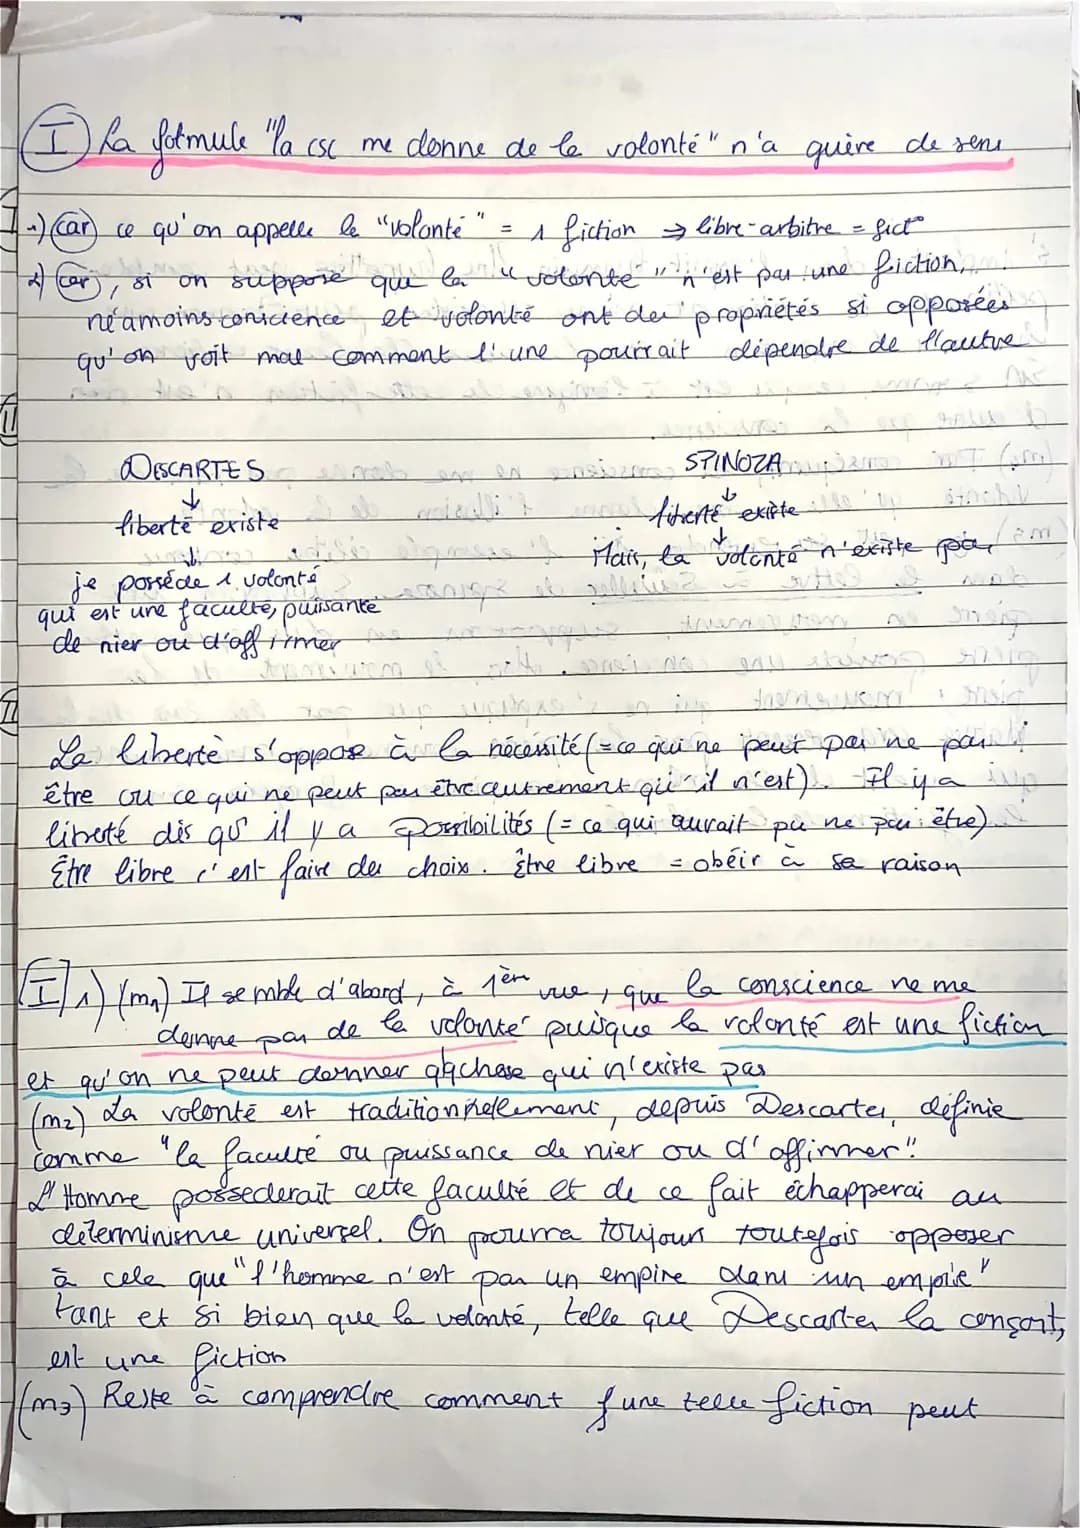 I) La formule "la csc me donne de la volonté" n'a guère de sens
1) (car) ce qu'on appelle la "volonté" = 1 fiction → libre-arbitre = fict°
2) (car), si on suppose que la "volonté" n'est pas une fiction,
néamoins conicience et volonté ont des propriétés si opposées
qu'on voit mal comment l'une pourrait dépendre de l'autre
DESCARTES
↓
liberté existe
↓
je possède 1 volonté
qui est une faculté, puissante
de nier ou d'affirmer
SPINOZA
↓
liberté existe
↓
Mais, la volonté n'existe pas
La liberté s'oppose à la nécessité (= ce qui ne peut pas ne pas
être ou ce qui ne peut pas être autrement qu'il n'est). Il y a
liberté dès qu'il y a possibilités (= ce qui aurait pu ne pas être).
Être libre c'est faire des choix. Être libre = obéir à sa raison
I) 1) (m1) Il semble d'abord, à 1èr vue, que la conscience ne me
donne pas de la volonté puisque la volonté est une fiction
et qu'on ne peut donner qqchose qui n'existe pas
(m2) La volonté est traditionnellement, depuis Descartes, définie
comme "la faculté ou puissance de nier ou d'affirmer".
L'Homme possederait cette faculté et de ce fait échapperai au
déterminisme universel. On pourra toujours toutefois opposer
à cela que "l'homme n'est pas un empire dans un empire"
tant et si bien que la volonté, telle que Descartes la conçoit,
est une fiction
(m3) Reste à comprendre comment une telle fiction peut